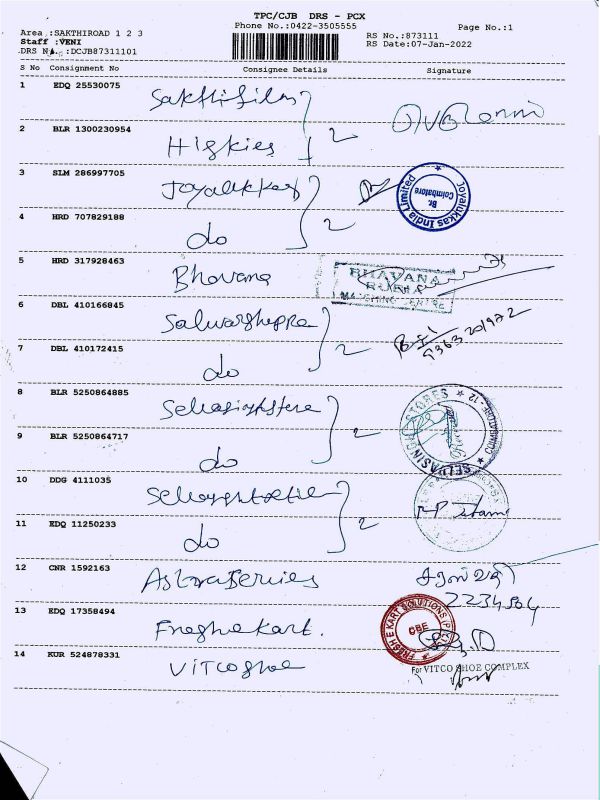 TPC/CJB DRS - PCX
Phone No.:0422-3505555
Page No.:1
Area :SAKTHIROAD 1 2 3
RS No.:873111
Staff :VENI
RS Date:07-Jan-2022
DRS No. :DCJB87311101
S No Consignment No Consignee Details Signature
1 EDQ 25530075 Sakthifilms
2 BLR 1300230954 2
3 SLM 286997705 Joyalukkas
Joyalukkas India Limited Br. Coimbatore
4 HRD 707829188 do 2
5 HRD 317928463 Bhavana
BHAVANA RUBIA MATCHING CENTRE
6 DBL 410166845
9363201972
7 DBL 410172415 do 2
8 BLR 5250864885
SELVASINGH STORES COIMBATORE - 12
9 BLR 5250864717 do 2
10 DDG 4111035
11 EDQ 11250233 do 2
12 CNR 1592163
2234504
13 EDQ 17358494 Freshekart.
CBE
14 KUR 524878331 Vitcoshoe
For VITCO SHOE COMPLEX